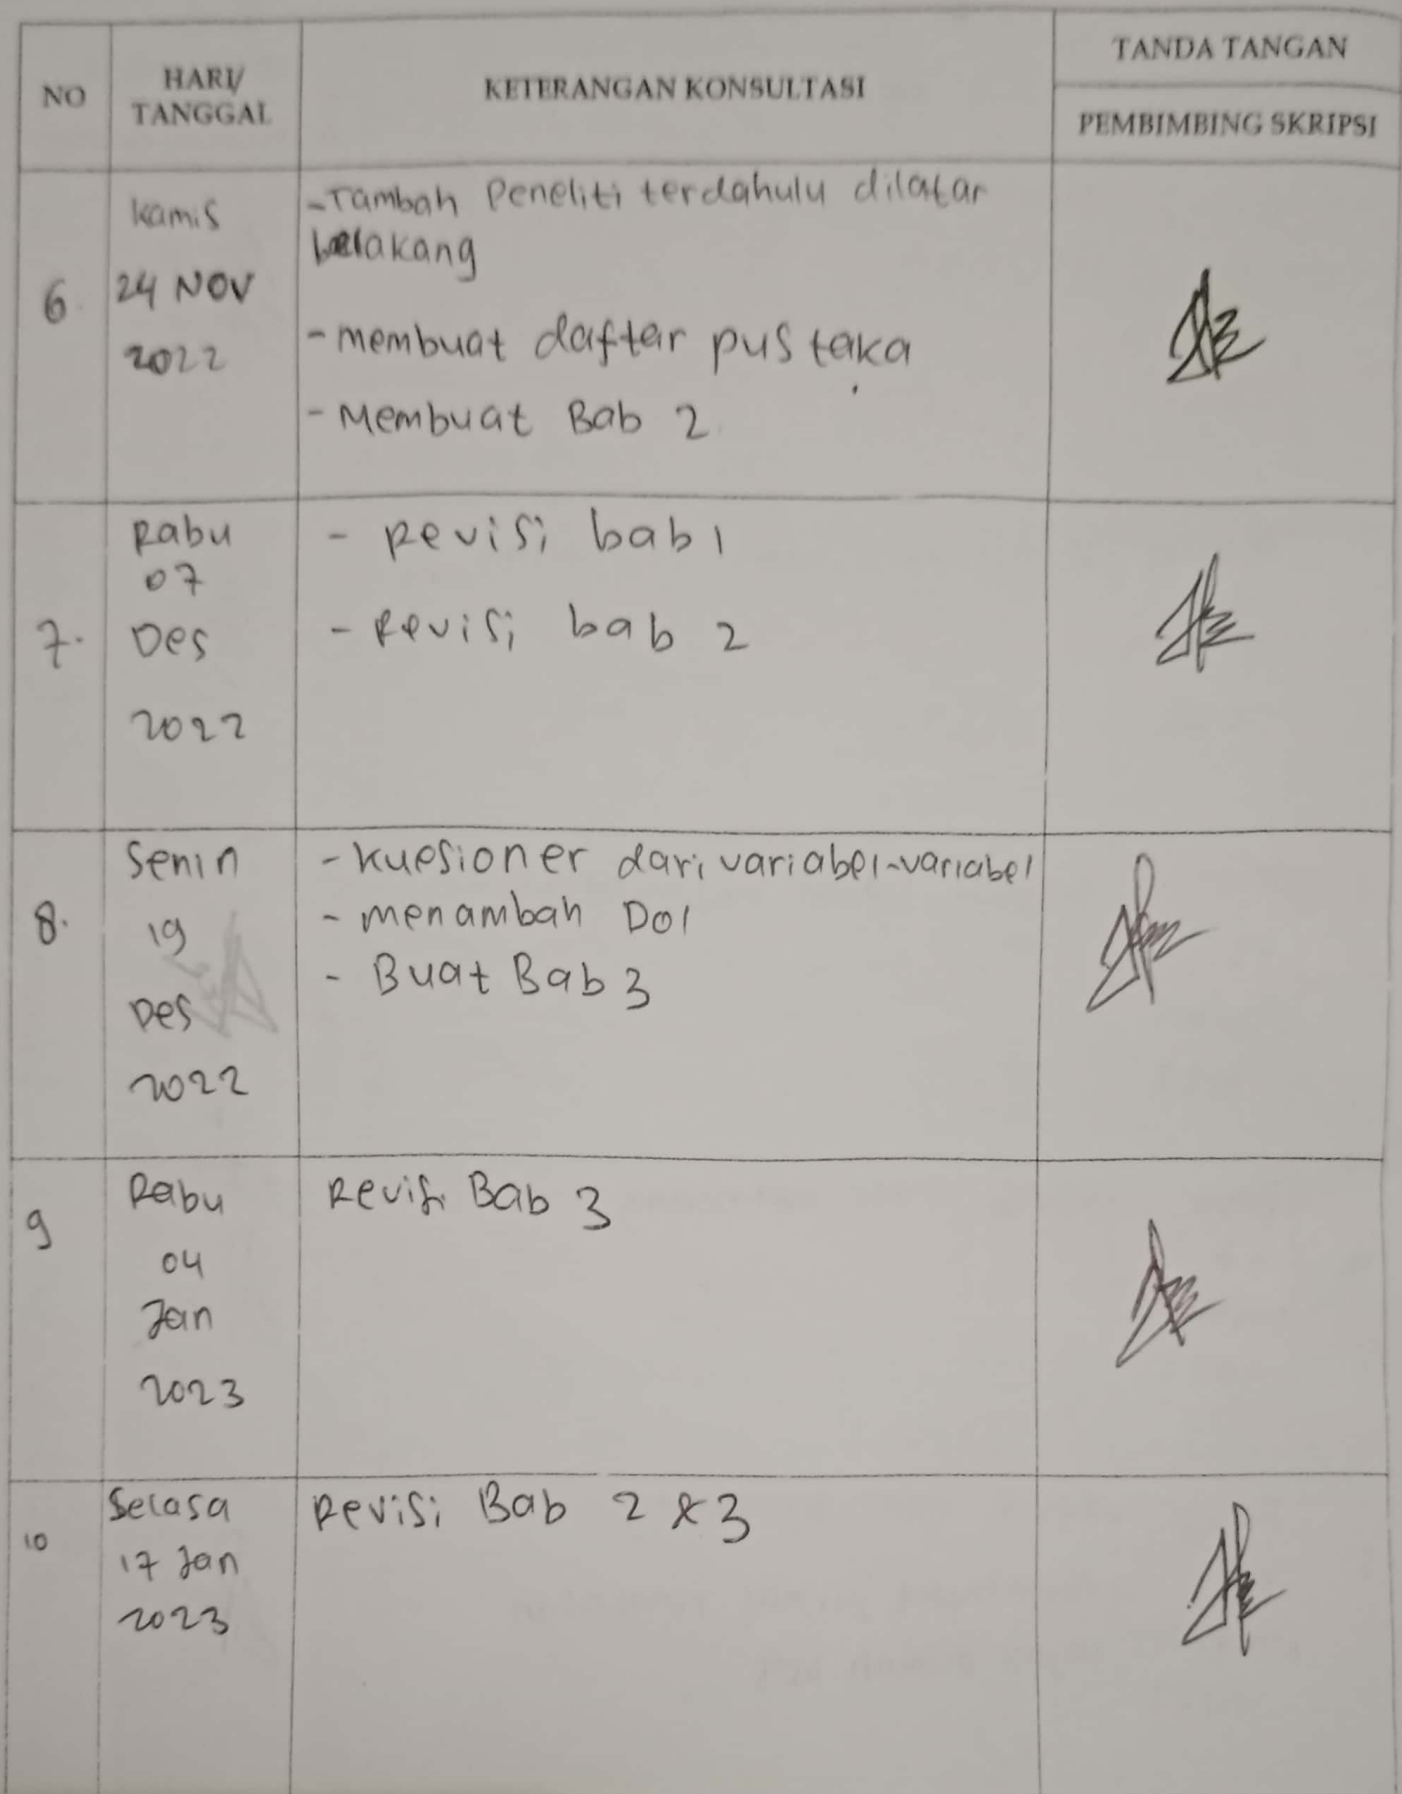 NO
HARI/
TANGGAL
KETERANGAN KONSULTASI
TANDA TANGAN
PEMBIMBING SKRIPSI
6.
Kamis
24 NOV
2022
-Tambah Peneliti terdahulu dilatar
belakang
- membuat daftar pustaka
- Membuat Bab 2
7.
Rabu
07
Des
2022
- Revisi bab 1
- Revisi bab 2
8.
Senin
19
Des
2022
- Kuesioner dari variabel-variabel
- menambah DOI
- Buat Bab 3
9
Rabu
04
Jan
2023
Revisi Bab 3
10
Selasa
17 Jan
2023
Revisi Bab 2 & 3